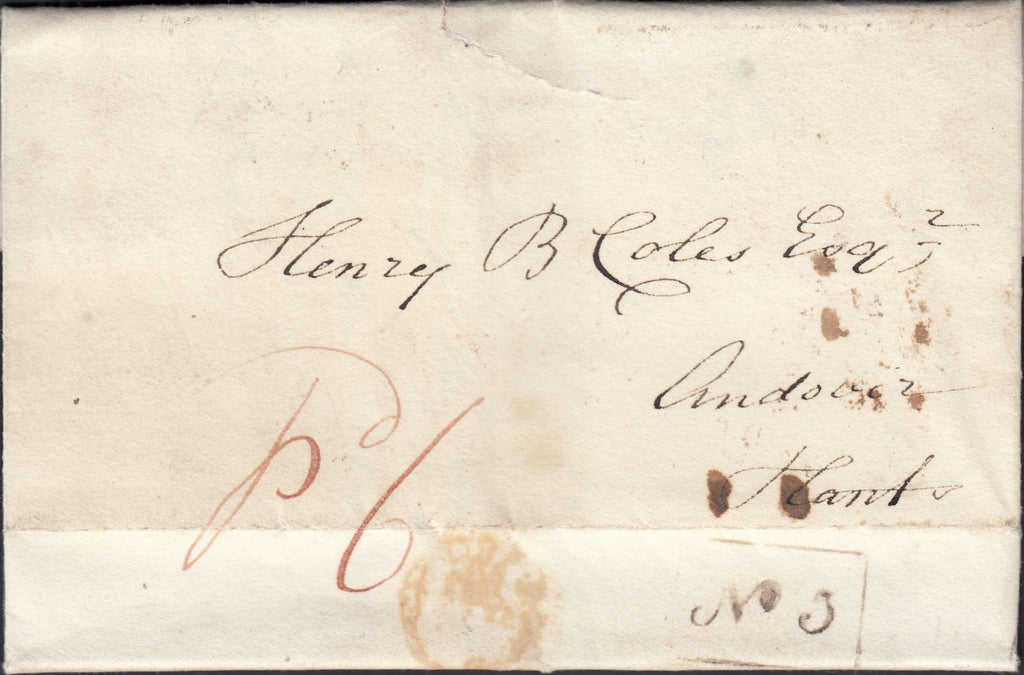 Henry B Coles Esqr
Andover
Hants
Pd 6
No 3